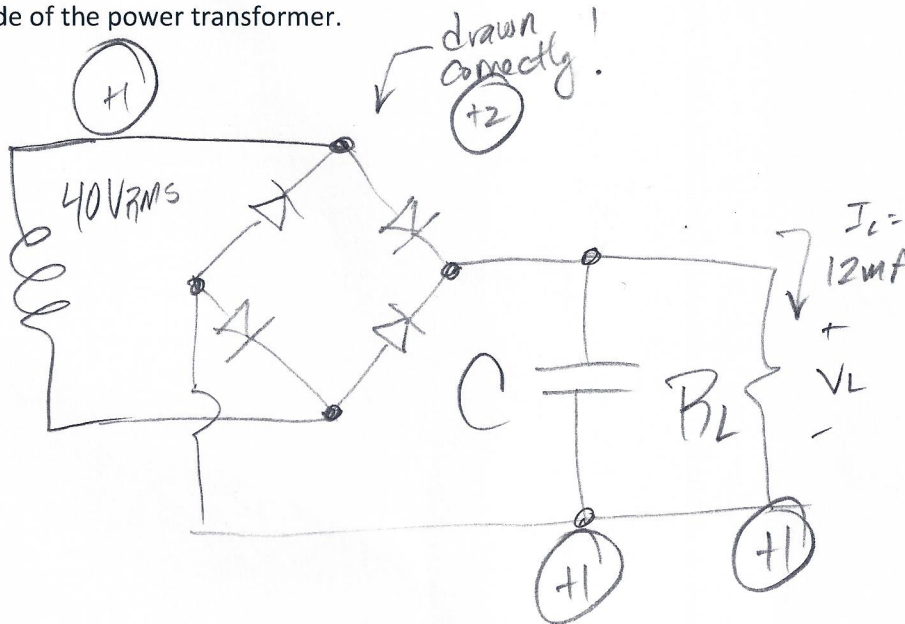 de of the power transformer.
drawn
correctly!
+1
+2
40VRMS
I_L =
12mA
+
C
R_L
V_L
-
+1
+1